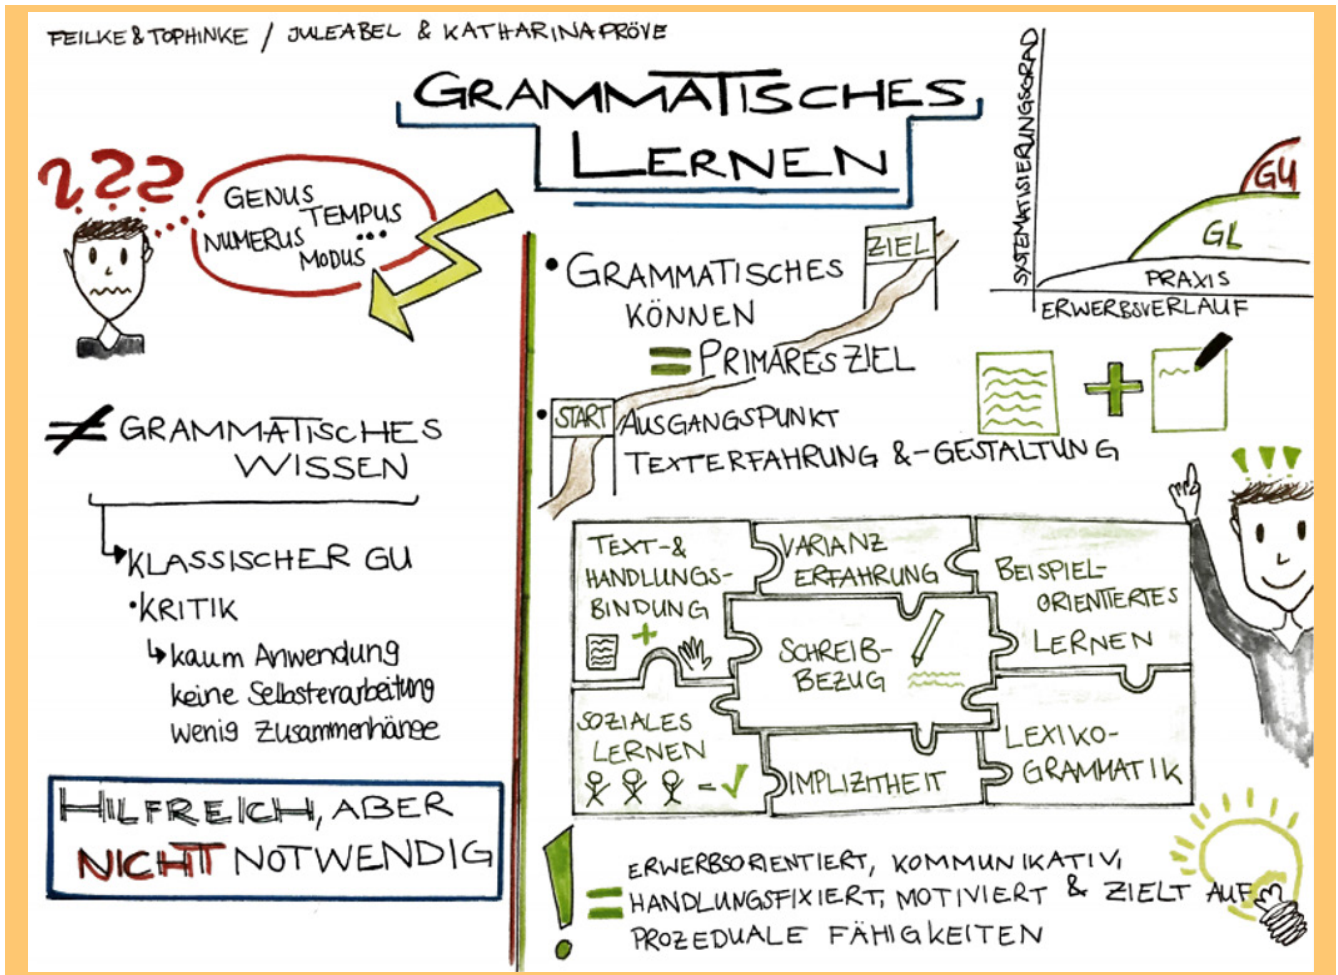 FEILKE & TOPHINKE / JULEABEL & KATHARINAPRÖVE
GRAMMATISCHES
LERNEN
???
GENUS
TEMPUS
NUMERUS ...
MODUS
≠ GRAMMATISCHES
WISSEN
KLASSISCHER GU
• KRITIK
↳ kaum Anwendung
keine Selbsterarbeitung
wenig Zusammenhänge
HILFREICH, ABER
NICHT NOTWENDIG
• GRAMMATISCHES
KÖNNEN
= PRIMÄRES ZIEL
ZIEL
• START
AUSGANGSPUNKT
TEXTERFAHRUNG & -GESTALTUNG
SYSTEMATISIERUNGSGRAD
GU
GL
PRAXIS
ERWERBSVERLAUF
+
!!!
TEXT- &
HANDLUNGS-
BINDUNG
+
VARIANZ
ERFAHRUNG
BEISPIEL-
ORIENTIERTES
LERNEN
SCHREIB-
BEZUG
SOZIALES
LERNEN
- ✓
IMPLIZITHEIT
LEXIKO-
GRAMMATIK
! ERWERBSORIENTIERT, KOMMUNIKATIV,
= HANDLUNGSFIXIERT, MOTIVIERT & ZIELT AUF
PROZEDUALE FÄHIGKEITEN